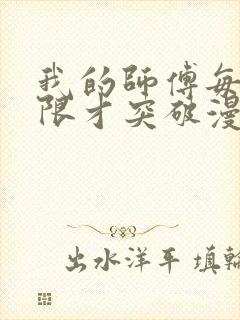 我的師傅每
限才突破漫
出水洋平 填輪